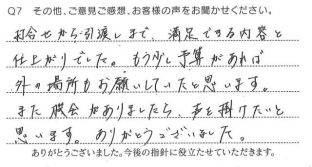 Q7 その他、ご意見ご感想、お客様の声をお聞かせください。
打合せから引渡しまで、満足できる内容と
仕上がりでした。もう少し予算があれば
外の場所もお願いしていたと思います。
また機会がありましたら、声を掛けたいと
思います。ありがとうございました。
ありがとうございました。今後の指針に役立たせていただきます。